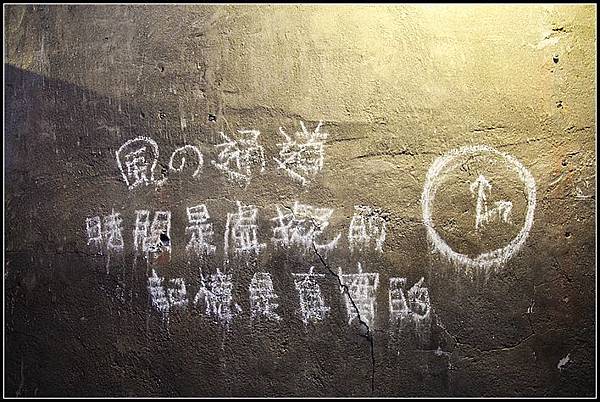 風の通道
時間是虛擬的
記憶是真實的